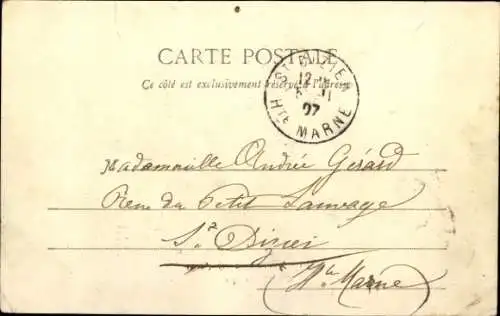 CARTE POSTALE
Ce côté est exclusivement réservé à l'adresse
ST DIZIER
12
07
HTE MARNE
Mademoiselle Andrée Gérard
Rue du Petit Sauvage
St Dizier
(Hte Marne)